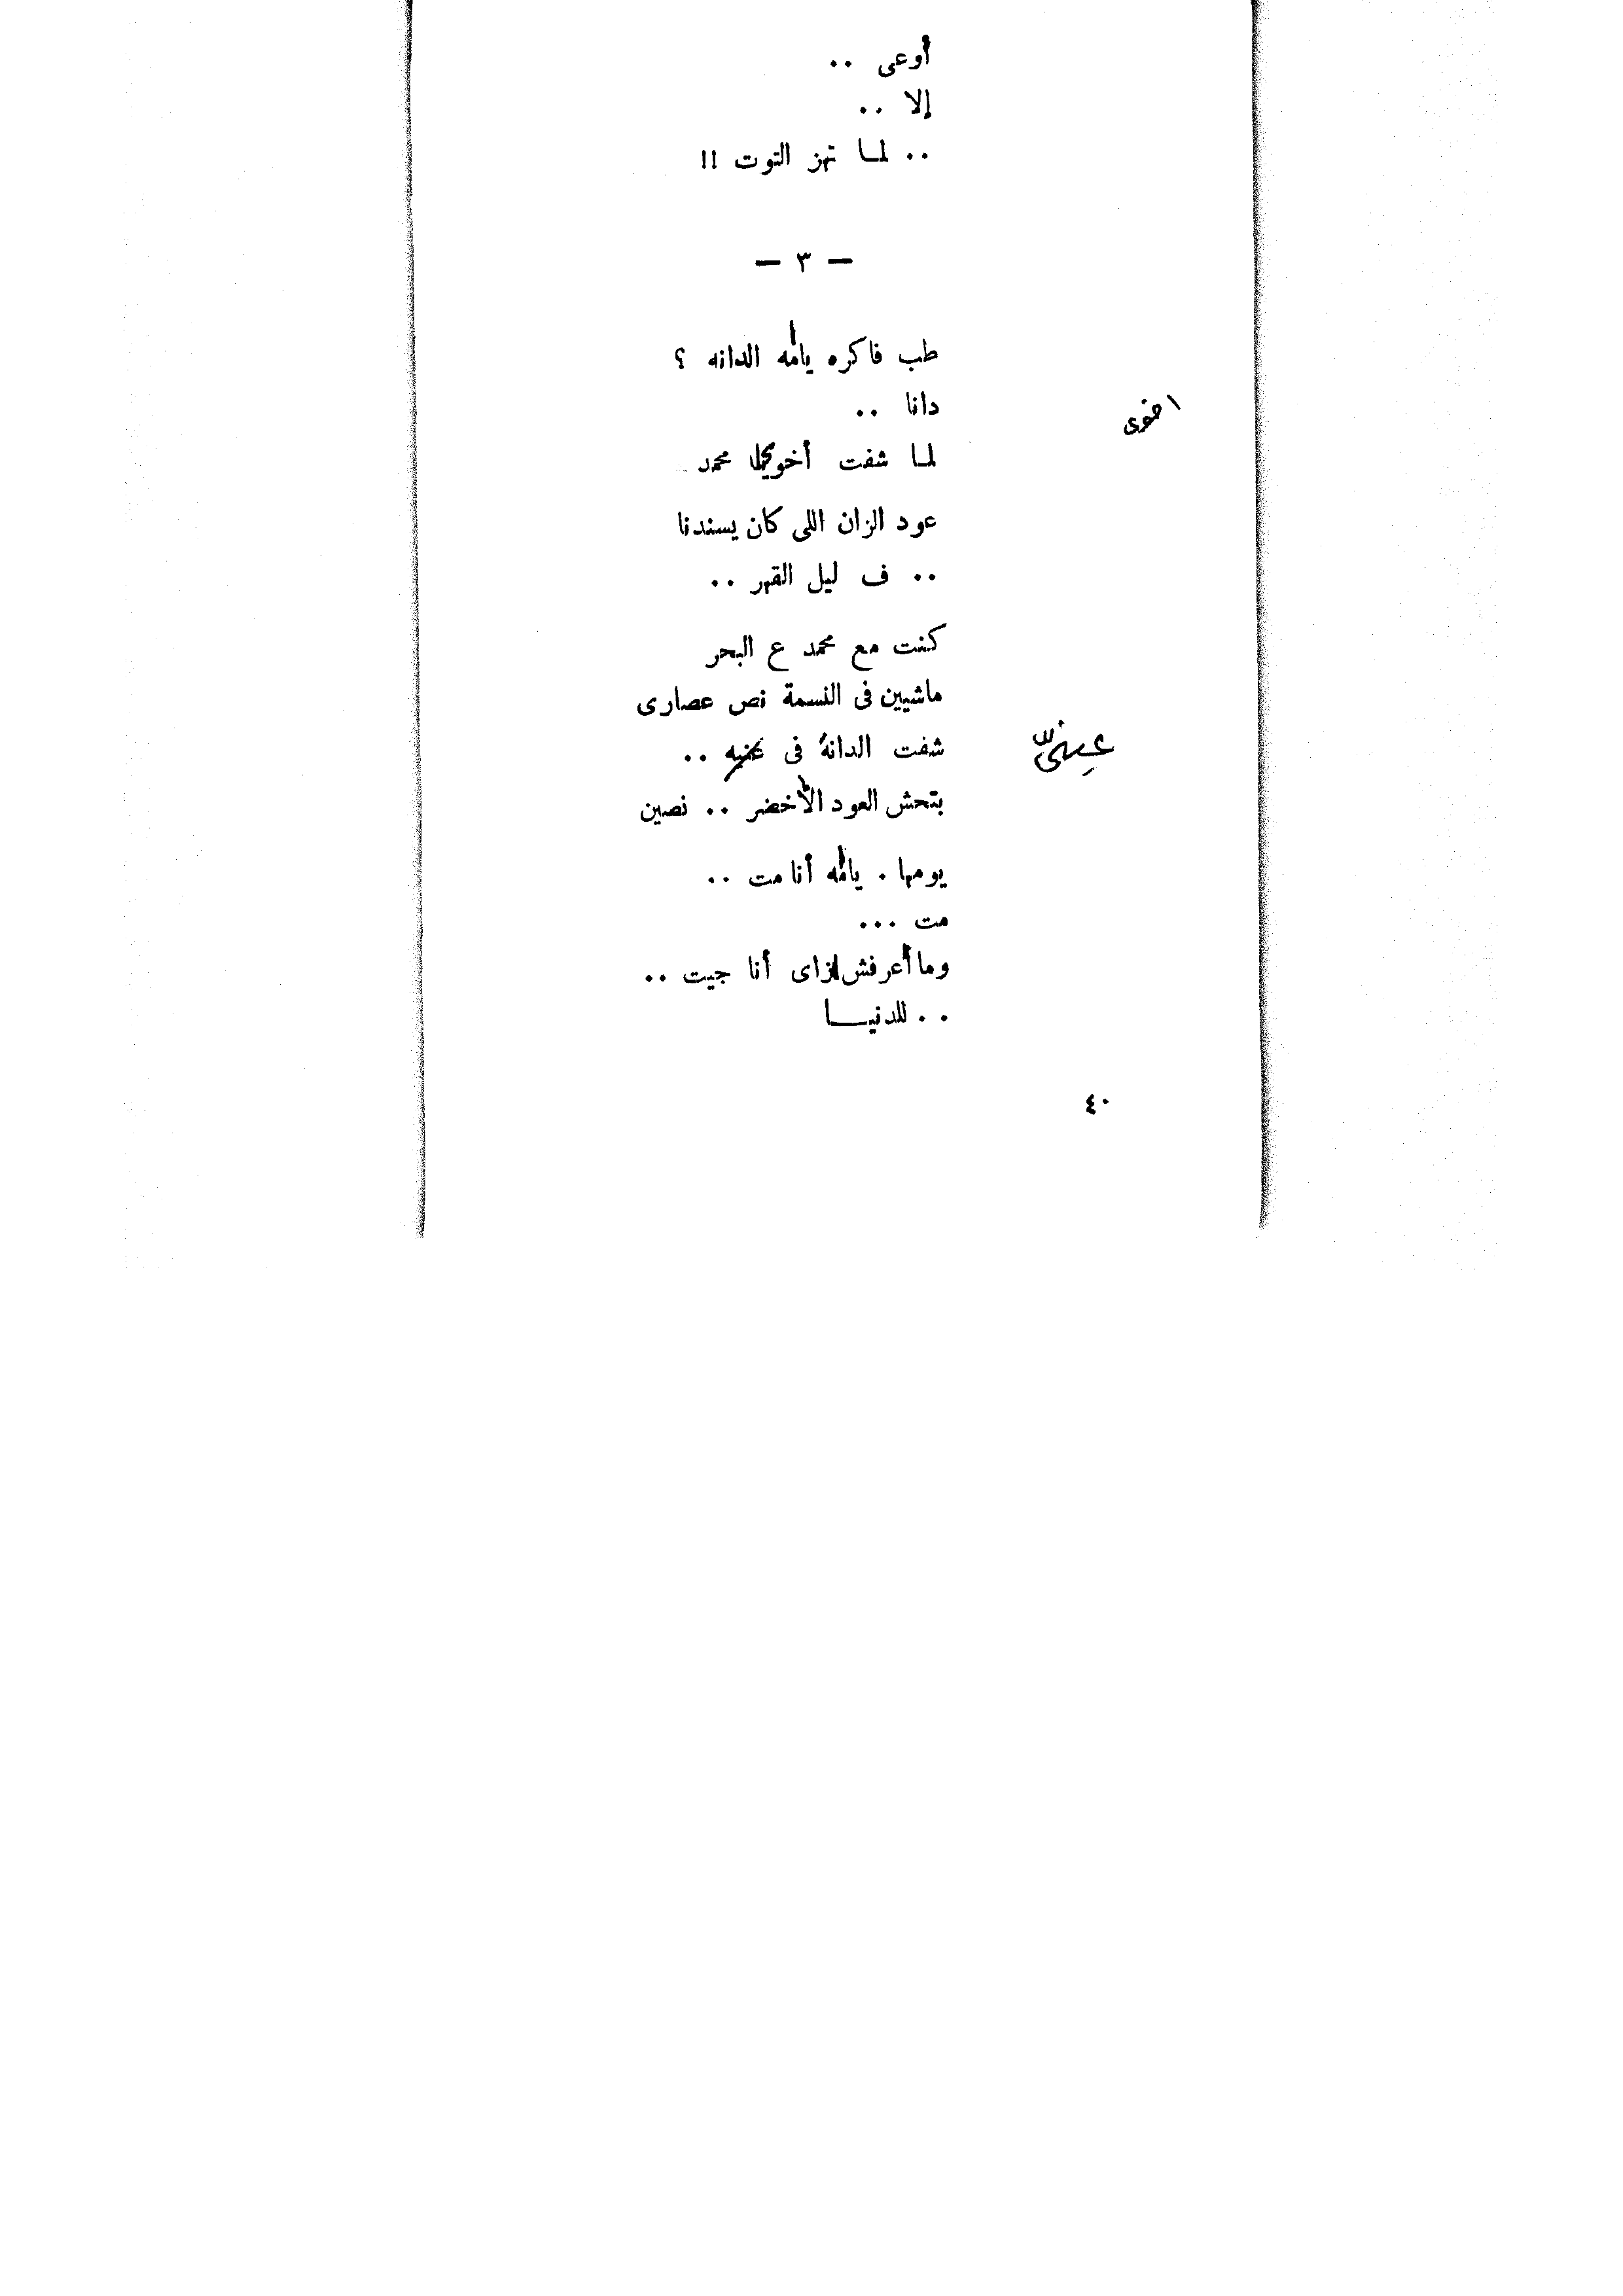 أوعى ..
إلا ..
.. لمـا تهز التوت !!
— ٣ —
طب فاكره يامه الدانه ؟
دانا ..
اخوى
لمـا شفت محمد
عود الزان اللى كان يسندنا
.. ف ليل القهر ..
كنت مع محمد ع البحر
ماشيين فى النسمة نص عصارى
شفت الدانة فى ..
بتحش العود الأخضر .. نصين
يومها . يامه أنا مت ..
مت ...
وما أعرفش ازاى أنا جيت ..
.. للدنيــا
٤٠